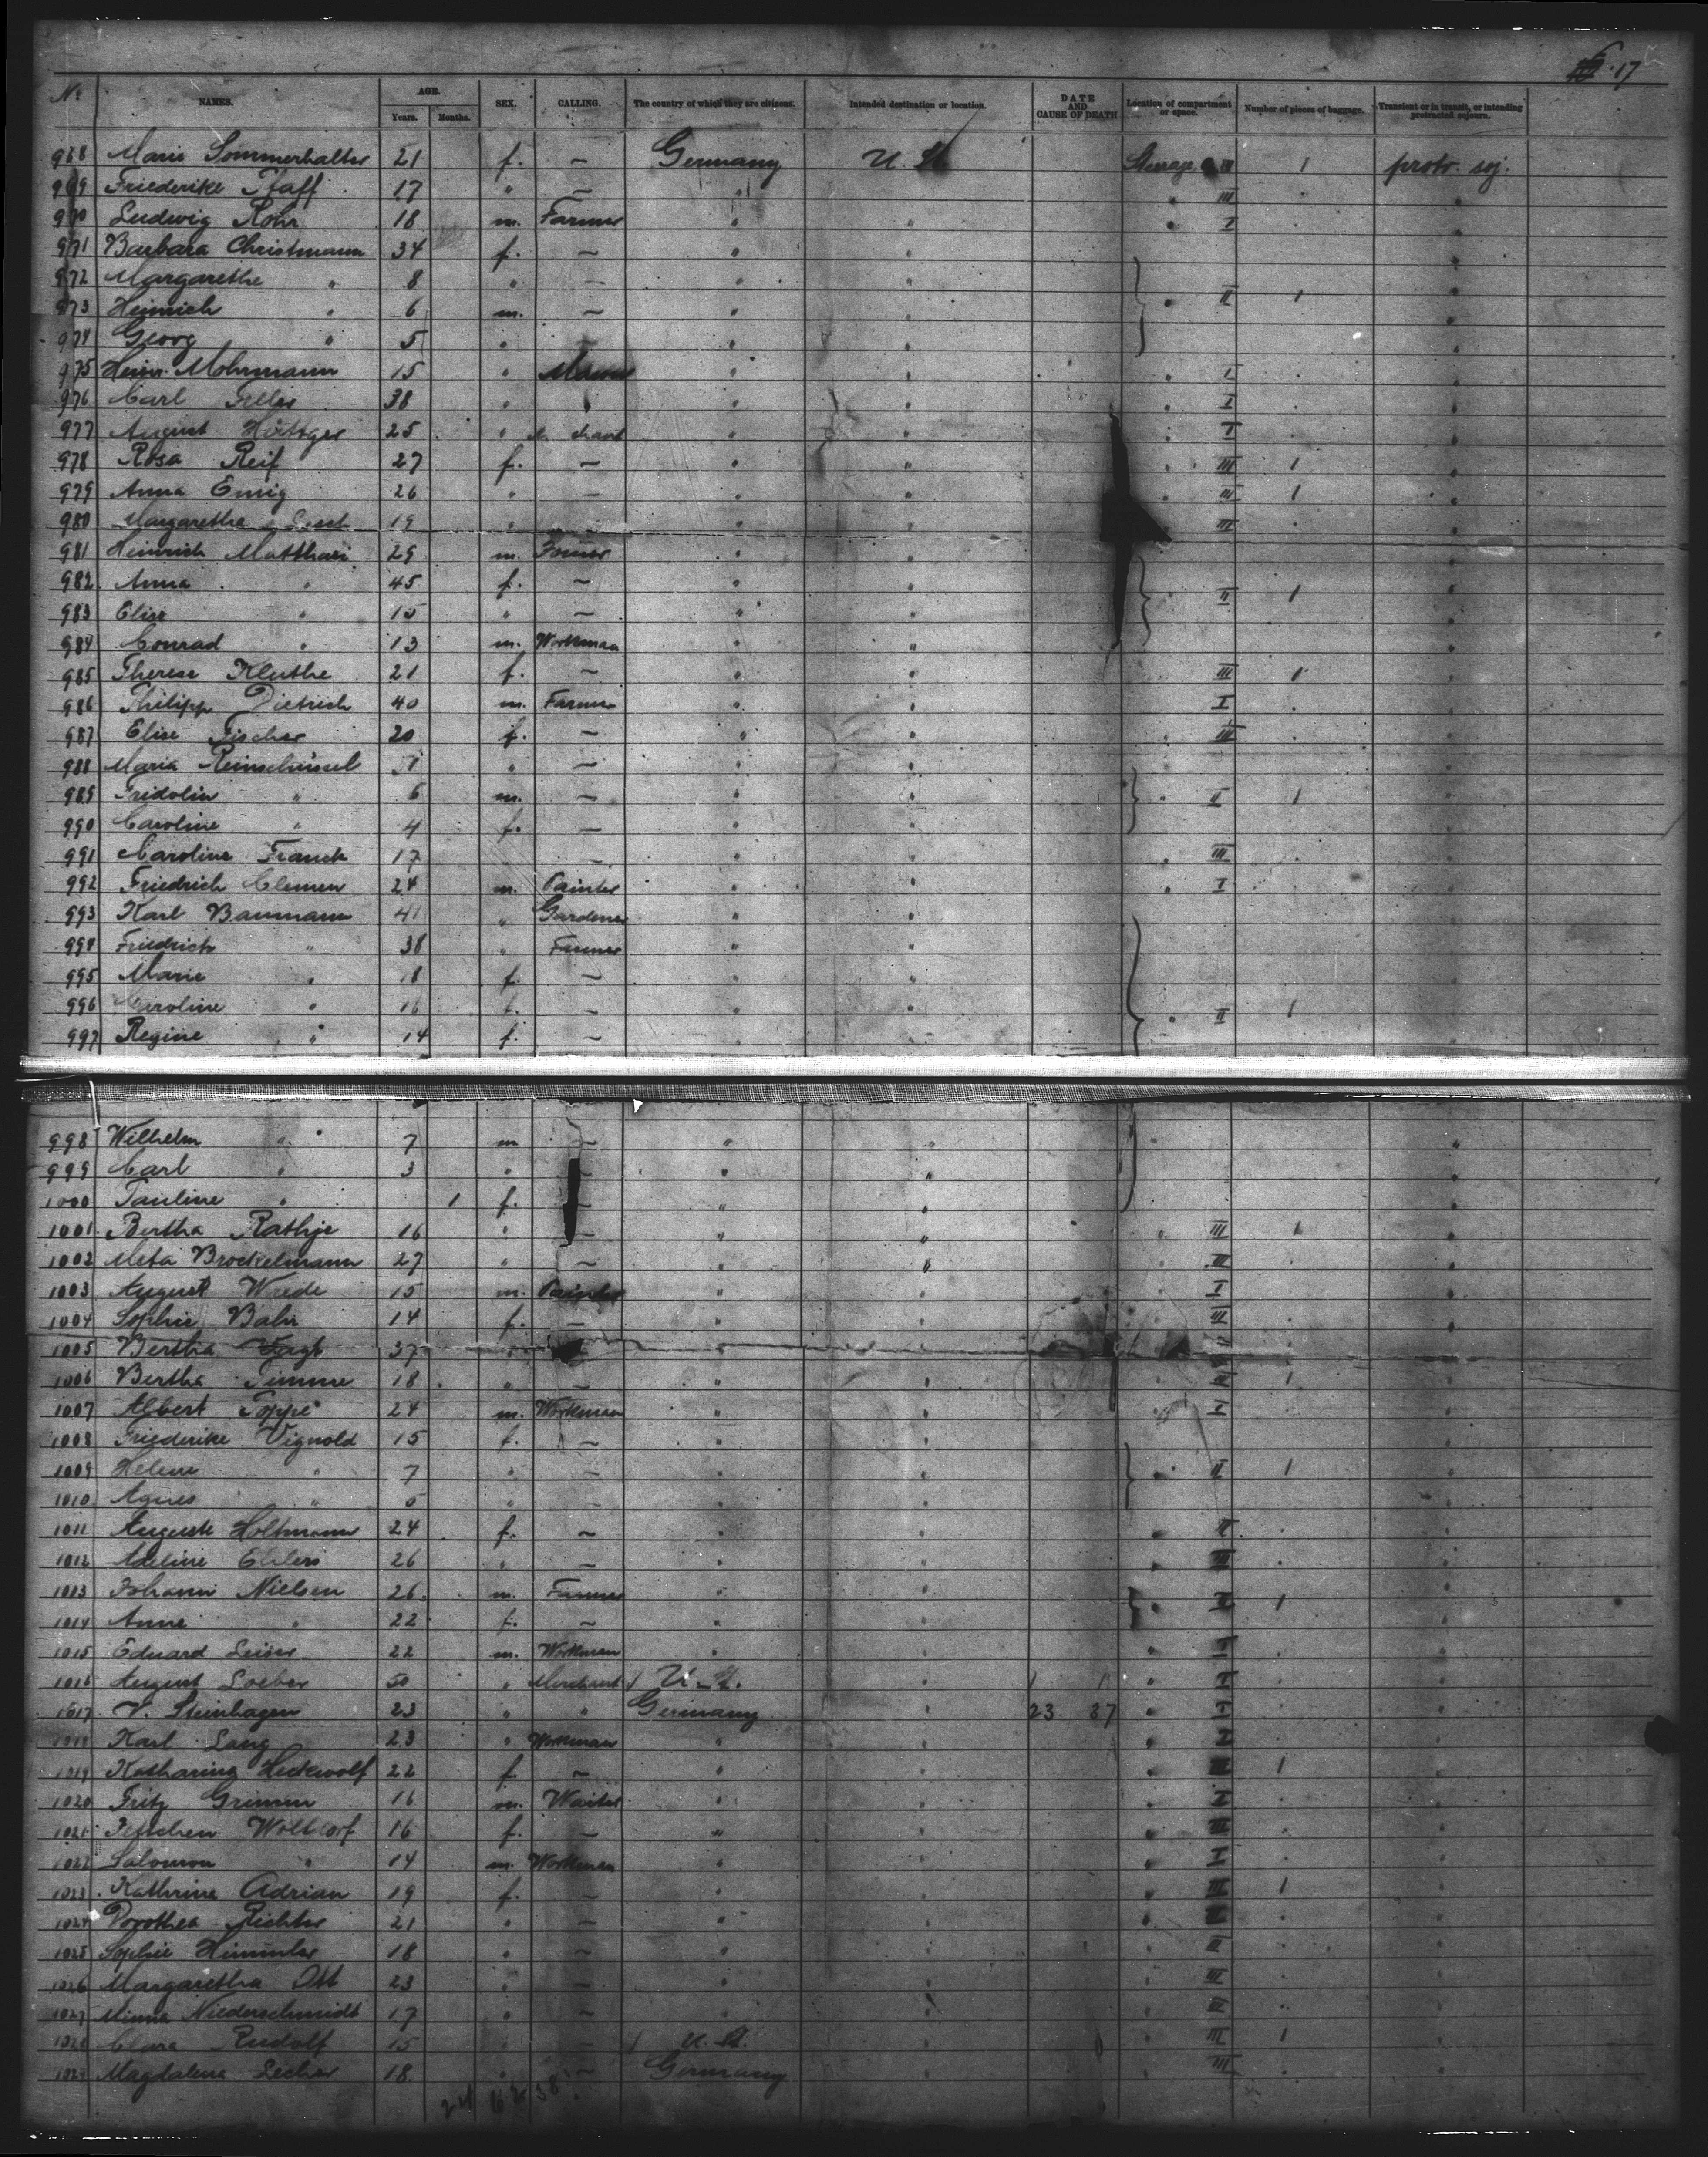 17
No NAMES. AGE. Years. Months. SEX. CALLING. The country of which they are citizens. Intended destination or location. DATE AND CAUSE OF DEATH Location of compartment or space. Number of pieces of baggage. Transient or in transit, or intending protracted sojourn.
968 Marie Sommerhalter 21 f. — Germany U. St. Steerage III 1 protr. soj.
969 Friederike Pfaff 17 " — " " III . "
970 Ludwig Rohr 18 m. Farmer " " " I . "
971 Barbara Christmann 34 f. — " " "
972 Margarethe " 8 " — " " "
973 Heinrich " 6 m. — " " " II 1 "
974 Georg " 5 " " " "
975 Heinr. Mohrmann 15 " " " " I . "
976 Carl 38 " " " " I . "
977 August 25 " " " " I . "
978 Rosa Reif 27 f. — " " " III 1 "
979 Anna Emig 26 " — " " " III 1 "
980 Margarethe 19 " " III . "
981 Heinrich Matthaei 29 m. Farmer " " "
982 Anna " 45 f. — " " "
983 Elise " 15 " — " " " II 1 "
984 Conrad " 13 m. Workman " " "
985 Therese Kluthe 21 f. — " " III 1 "
986 Philipp Dietrich 40 m. Farmer " " I . "
987 Elise Fischer 20 f. — " " " III . "
988 Maria " — " " "
989 Fridolin " 6 m. — " " " II 1 "
990 Caroline " 4 f. — " " "
991 Caroline Franck 17 — " " " III . "
992 Friedrich Clemen 24 m. Painter " " " I . "
993 Karl Baumann 41 " Gardener " " "
994 Friedrich " 38 " Farmer " " "
995 Marie " 18 f. — " " "
996 Caroline " 16 f. — " " " II 1 "
997 Regine " 14 f. — " " "
998 Wilhelm " 7 m — " " "
999 Carl " 3 " — " " "
1000 Pauline " 1 f. — " " "
1001 Bertha Rathje 16 " — " " " III 1 "
1002 Meta Brockelmann 27 " — " " III . "
1003 August Wrede 15 m. Painter " " I . "
1004 Sophie Bahr 14 f. — " " III . "
1005 Bertha 37 " " " "
1006 Bertha Timme 18 " — " " III 1 "
1007 Albert Toppe 24 m. Workman " " " I . "
1008 Friederike Vignold 15 f. — " " "
1009 Helene " 7 " — " " " II 1 "
1010 Agnes " 5 " — " " "
1011 Auguste Holtmann 24 f. — " " " II . "
1012 Adeline Ehlers 26 " — " " " III . "
1013 Johann Nielsen 26 m. Farmer " " " II 1 "
1014 Anne " 22 f. — " " "
1015 Eduard Leiser 22 m. Workman " " " I . "
1016 August Loeber 50 " Merchant U. St. " " I . "
1017 V. Steinhagen 23 " " Germany 23 37 " I . "
1018 Karl Lang 23 " Workman " " " I . "
1019 Katharina Heckwolf 22 f. — " " " III 1 "
1020 Fritz Grimm 16 m. Waiter " " " I . "
1021 16 f. — " " " III . "
1022 Salomon " 14 m. Workman " " " I . "
1023 Kathrina Adrian 19 f. — " " " III 1 "
1024 Dorothea Richter 21 " — " " " III . "
1025 Sophie Himmler 18 " — " " " III . "
1026 Margaretha Ott 23 " — " " " III . "
1027 Minna Niederschmidt 17 " — " " " III . "
1028 Clara Rudolf 15 " — U. St. " " III 1 "
1029 Magdalena Lecher 18 " — Germany III